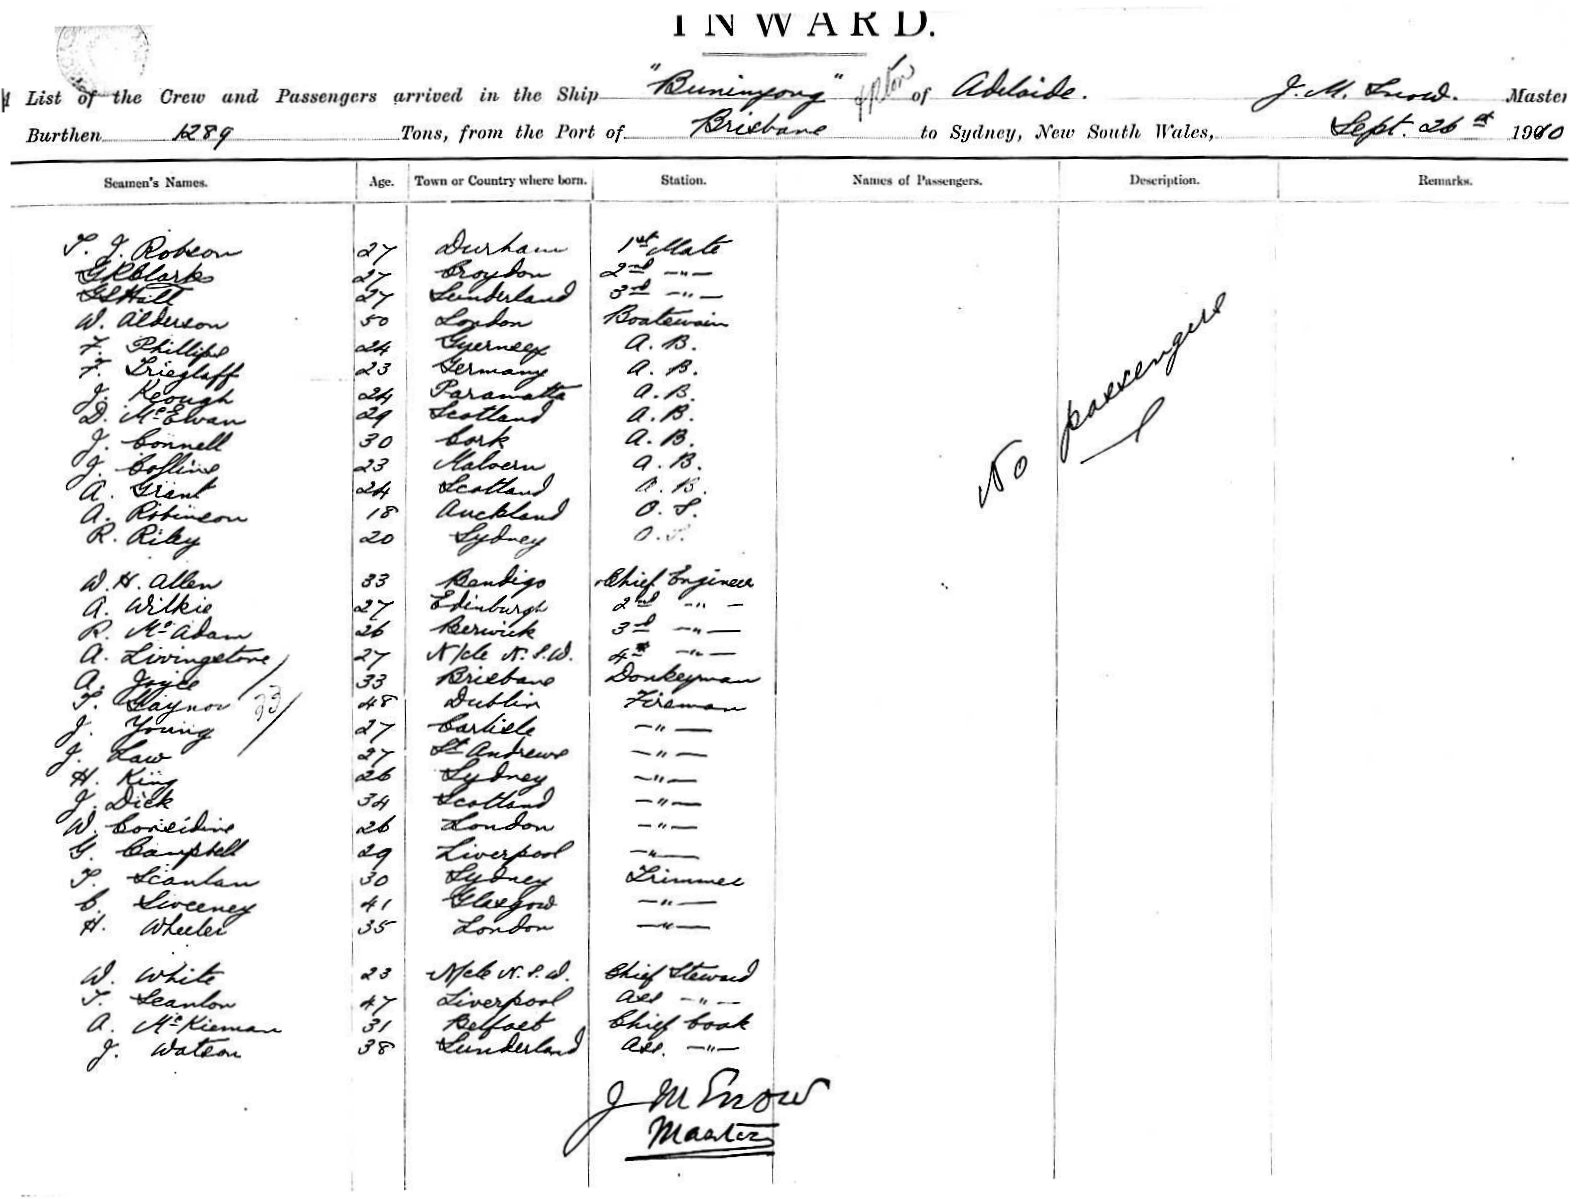 INWARD.
List of the Crew and Passengers arrived in the Ship "Buninyong" of Adelaide. J. M. Snow. Master
Burthen 1289 Tons, from the Port of Brisbane to Sydney, New South Wales, Sept. 26th 1900
Seamen's Names. Age. Town or Country where born. Station. Names of Passengers. Description. Remarks.
T. J. Robson 27 Durham 1st Mate
G R Clarke 27 Croydon 2nd —"—
G S Hall 27 Sunderland 3rd —"—
W. Alderson 50 London Boatswain
F. Phillips 24 Guernsey A. B.
F. Trieglaff 23 Germany A. B.
J. Keough 24 Paramatta A. B.
D. McEwan 29 Scotland A. B.
J. Connell 30 Cork A. B.
J. Collins 23 Malvern A. B.
A. Grant 24 Scotland A. B.
A. Robinson 18 Auckland O. S.
R. Riley 20 Sydney O. S.
No passengers
W. H. Allen 33 Bendigo Chief Engineer
A. Wilkie 27 Edinburgh 2nd —"—
R. McAdam 26 Berwick 3rd —"—
A. Livingstone 27 N/cle N.S.W. 4th —"—
A. Joyce 33 Brisbane Donkeyman
T. Gaynor 48 Dublin Fireman
33
J. Young 27 Carlisle —"—
J. Law 27 St Andrews —"—
H. King 26 Sydney —"—
J. Dick 34 Scotland —"—
W. Considine 26 London —"—
G. Campbell 29 Liverpool —"—
T. Scanlan 30 Sydney Trimmer
C. Sweeney 41 Glasgow —"—
H. Wheeler 35 London —"—
W. White 23 N/cle N.S.W. Chief Steward
T. Scanlon 47 Liverpool Ass —"—
A. McKiernan 31 Belfast Chief Cook
J. Watson 38 Sunderland Ass. —"—
J M Snow
Master